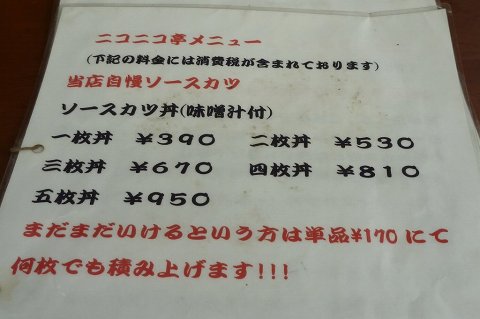 ニコニコ亭メニュー
(下記の料金には消費税が含まれております)
当店自慢ソースカツ
ソースカツ丼(味噌汁付)
一枚丼 ￥390 二枚丼 ￥530
三枚丼 ￥670 四枚丼 ￥810
五枚丼 ￥950
まだまだいけるという方は単品¥170にて
何枚でも積み上げます!!!